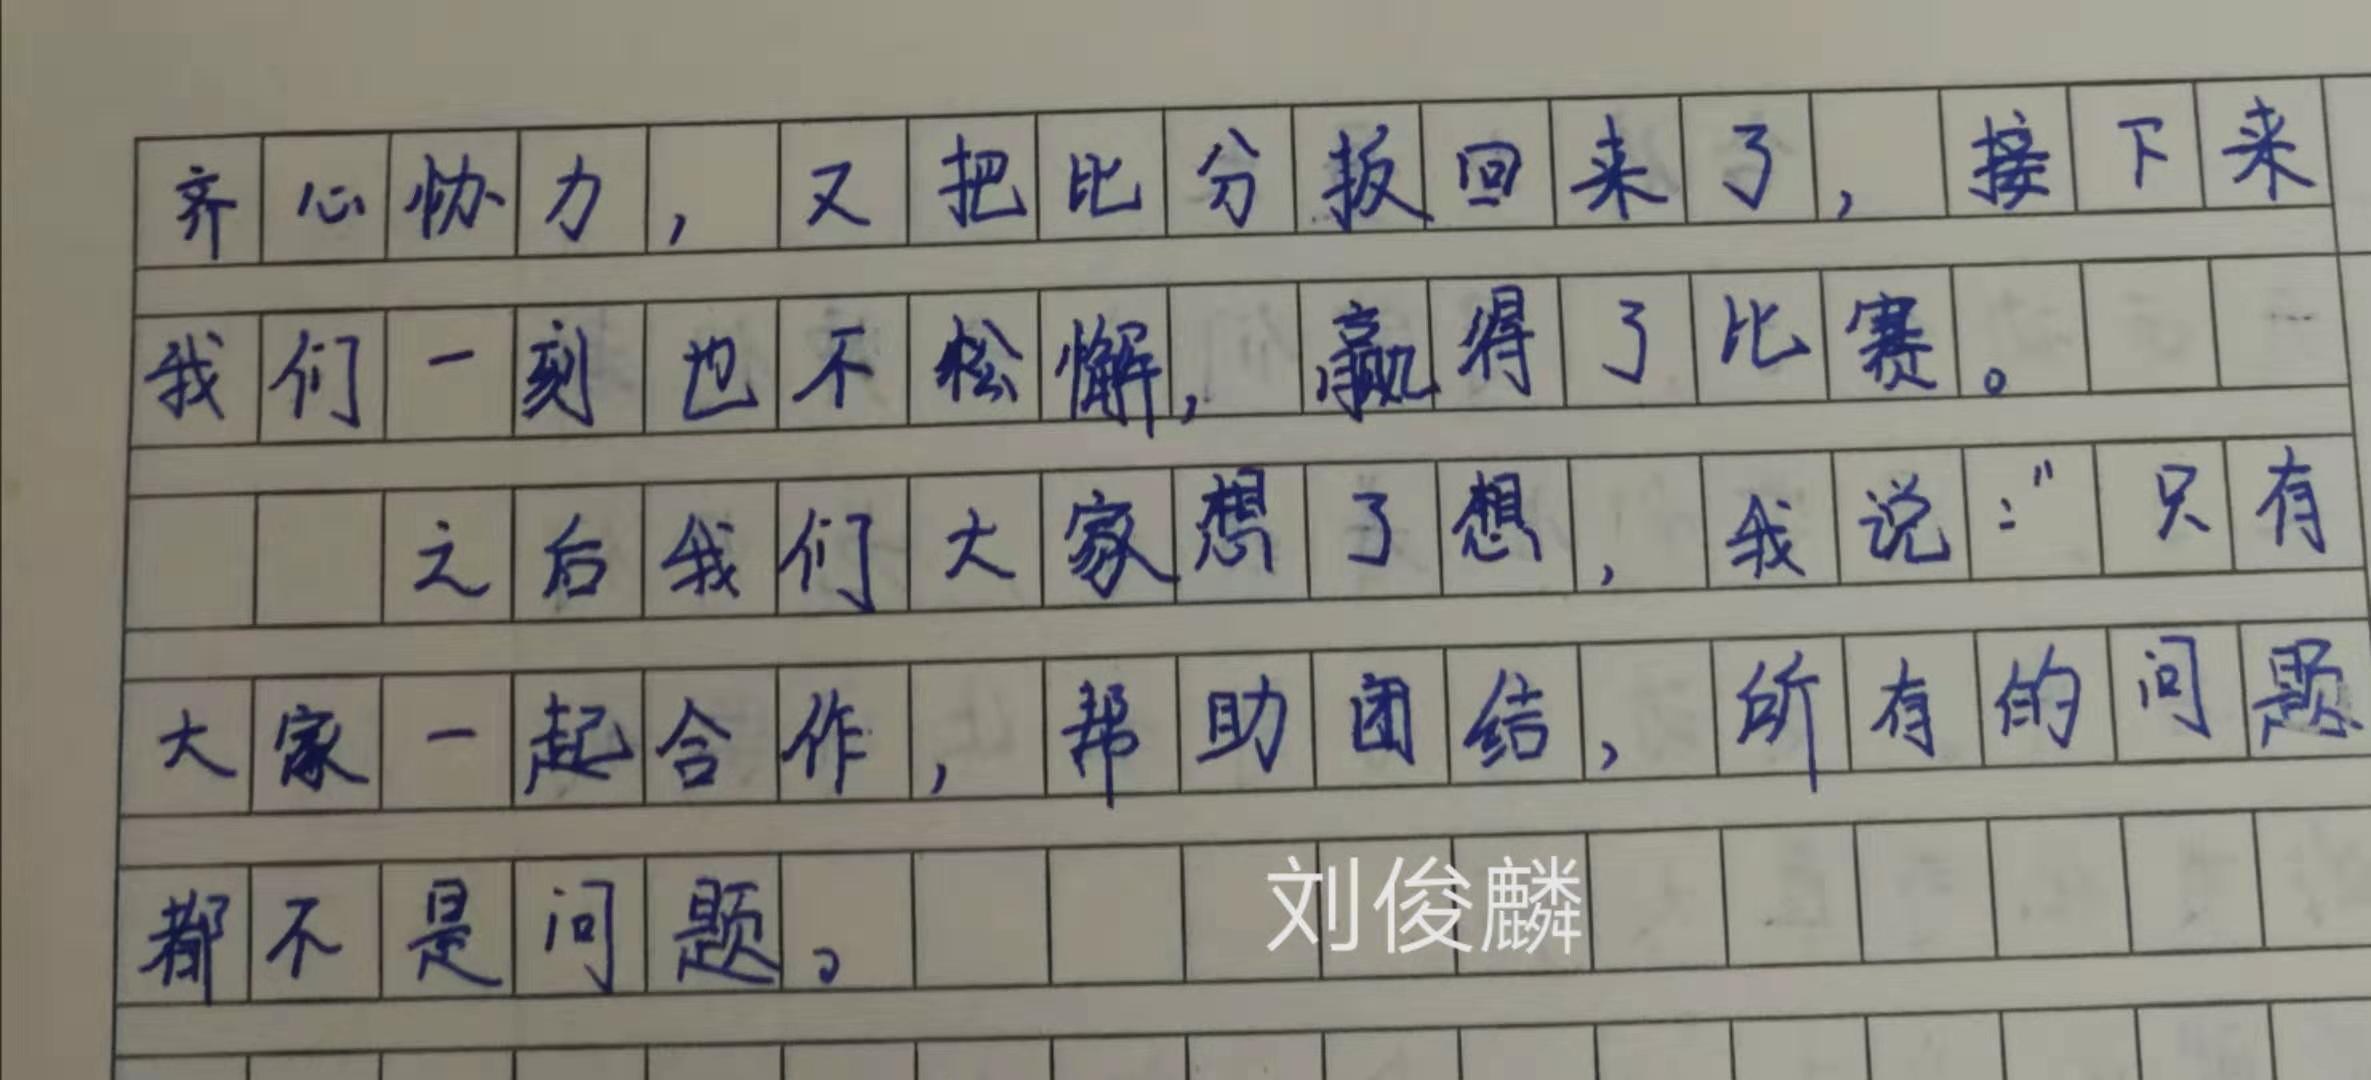 齐心协力，又把比分扳回来了，接下来
我们一刻也不松懈，赢得了比赛。
之后我们大家想了想，我说：“只有
大家一起合作，帮助团结，所有的问题
都不是问题。
刘俊麟